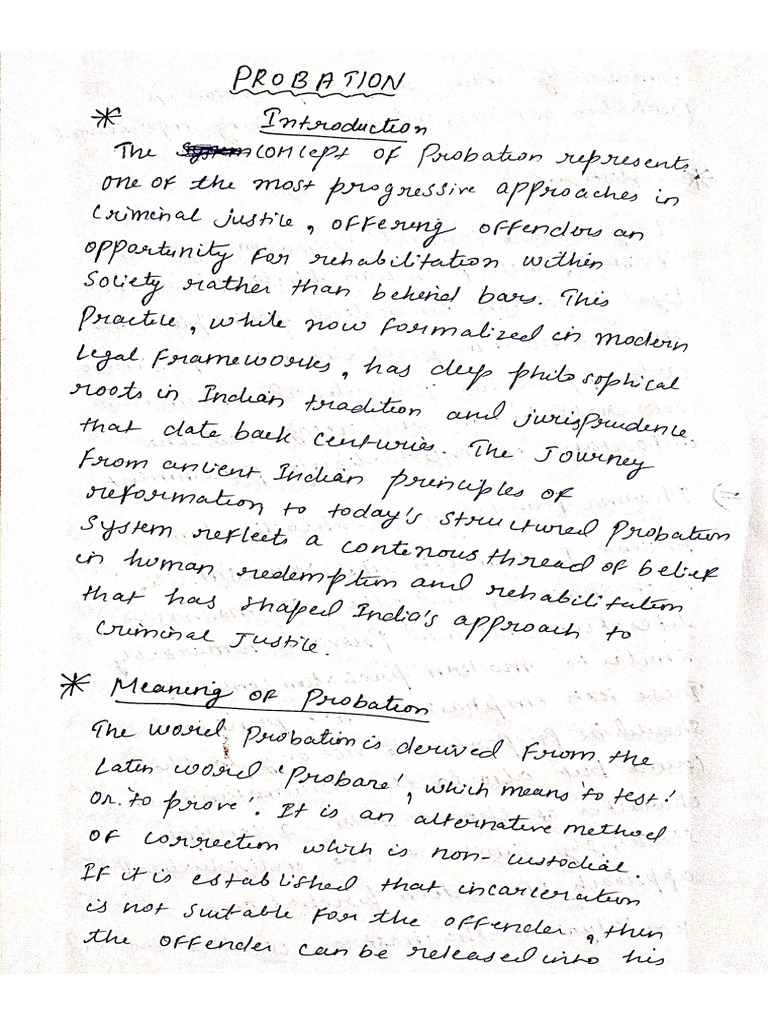 PROBATION
* Introduction
The concept of Probation represents
one of the most progressive approaches in
Criminal justice, offering offenders an
opportunity for rehabilitation within
Society rather than behind bars. This
Practice, while now formalized in modern
Legal frameworks, has deep philosophical
roots in Indian tradition and jurisprudence
that date back centuries. The Journey
From ancient Indian principles of
reformation to today's structured Probation
System reflects a contenous thread of belief
in human redemption and rehabilitation
that has shaped India's approach to
Criminal Justice.
* Meaning of Probation
The word Probation is derived from the
Laten word 'Probare', which means 'to test'
or 'to prove'. It is an alternative method
of correction which is non-custodial.
If it is established that incarceration
is not suitable for the offender, then
the offender can be released into his